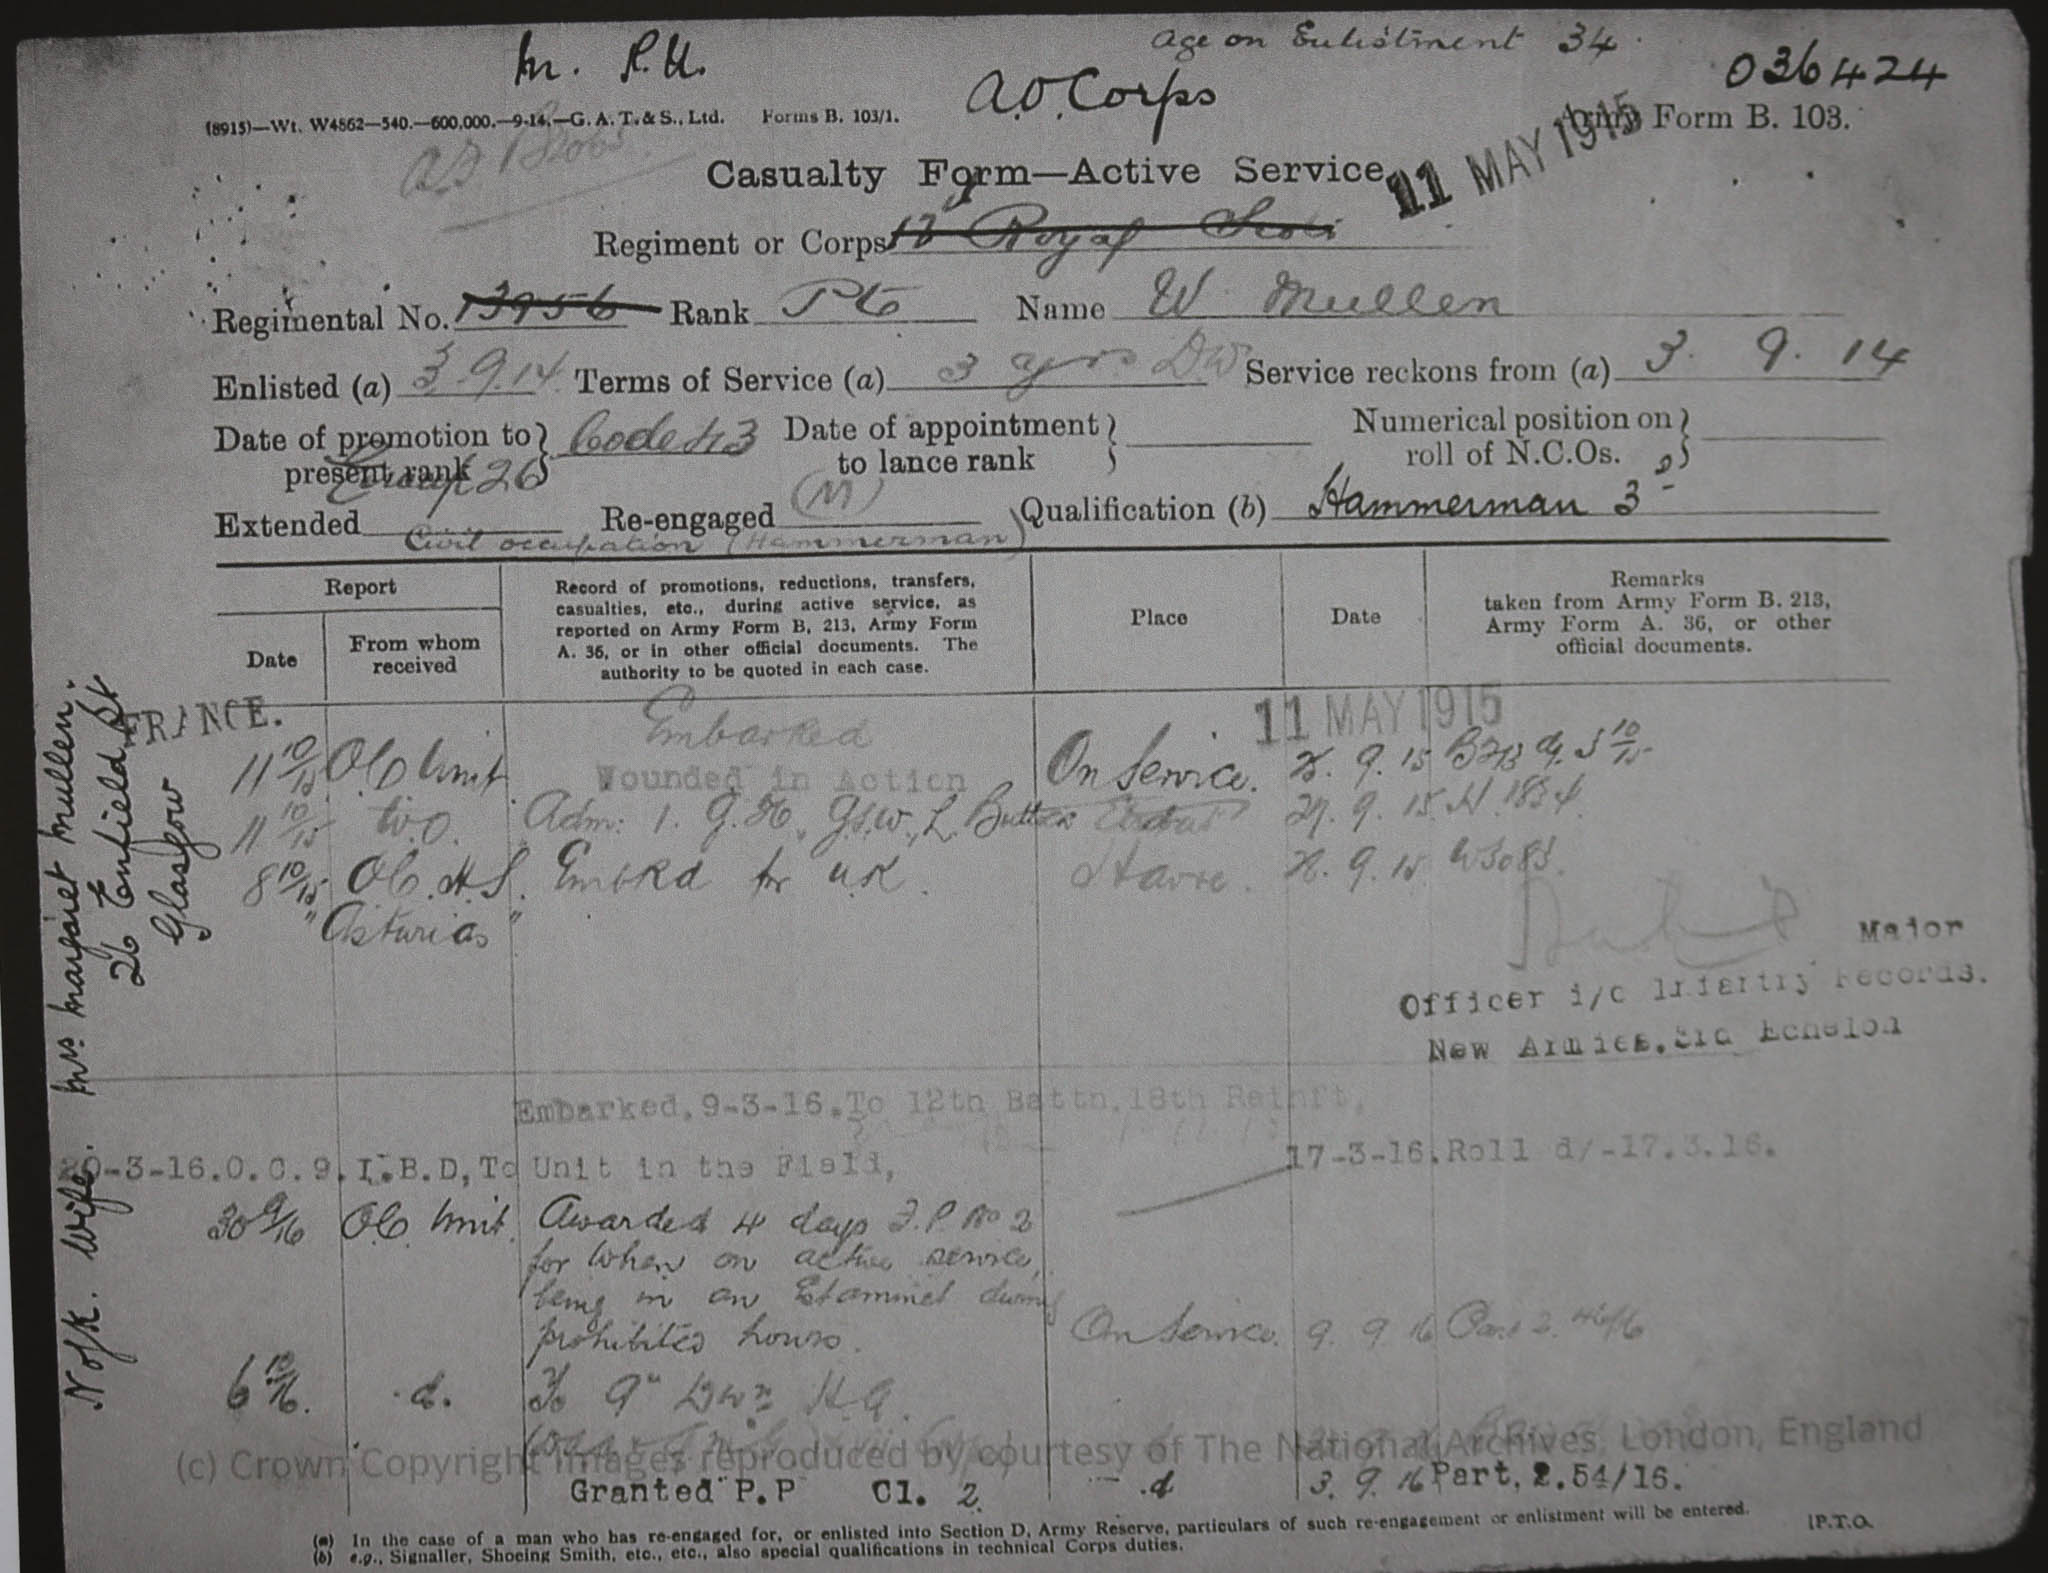 Age on Enlistment 34
M. R.U.
A.O. Corps
036424
(8915)—Wt. W4862—540.—600,000.—9-14.—G. A. T. & S., Ltd. Forms B. 103/1.
Army Form B. 103.
11 MAY 1915
Casualty Form—Active Service.
Regiment or Corps 12 Royal Scots
Regimental No. 13956 Rank Pte Name W Mullen
Enlisted (a) 3.9.14 Terms of Service (a) 3 yrs DW Service reckons from (a) 3. 9. 14
Date of promotion to present rank Code 43 Date of appointment to lance rank Numerical position on roll of N.C.Os.
Group 26
(M)
Extended Re-engaged Qualification (b) Hammerman 3
Civil occupation (Hammerman)
Report
Date
From whom received
Record of promotions, reductions, transfers,
casualties, etc., during active service, as
reported on Army Form B, 213, Army Form
A. 36, or in other official documents. The
authority to be quoted in each case.
Place
Date
Remarks
taken from Army Form B. 213,
Army Form A. 36, or other
official documents.
FRANCE. Embarked 11 MAY 1915
11 10/15 OC Unit Wounded in Action On Service. 9. 15
11 10/15 W.O. Adm: 1. G.H. GSW. L. Buttock 9. 15
8 10/15 OC. H.S. Embkd for U.K. Havre. 9. 15
"Asturias"
Major
Officer i/c Infantry Records.
New Armies, 3rd Echelon
Embarked, 9-3-16. To 12th Battn. 18th Reinft,
20-3-16. O.C. 9. I.B.D, To Unit in the Field, 17-3-16. Roll d/-17.3.16.
30 9/16 OC Unit. Awarded 4 days F.P. No 2
for When on active service,
being in an Estaminet during
prohibited hours. On Service. 9. 9 16 Part 2. 46/16
6 10/16. .d. To 9th Divn H.Q.
(c) Crown Copyright Images reproduced by courtesy of The National Archives, London, England
Granted P.P Cl. 2. .d 3. 9. 16 Part, 2.54/16.
(a) In the case of a man who has re-engaged for, or enlisted into Section D, Army Reserve, particulars of such re-engagement or enlistment will be entered.
(b) e.g., Signaller, Shoeing Smith, etc., etc., also special qualifications in technical Corps duties.
[P.T.O.
N of K. Wife. Mrs Margaret Mullen.
26 Enfield St
Glasgow